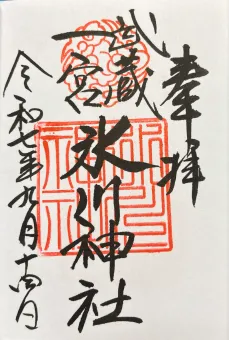 奉拝
武蔵一宮
氷川神社
令和七年九月十四日